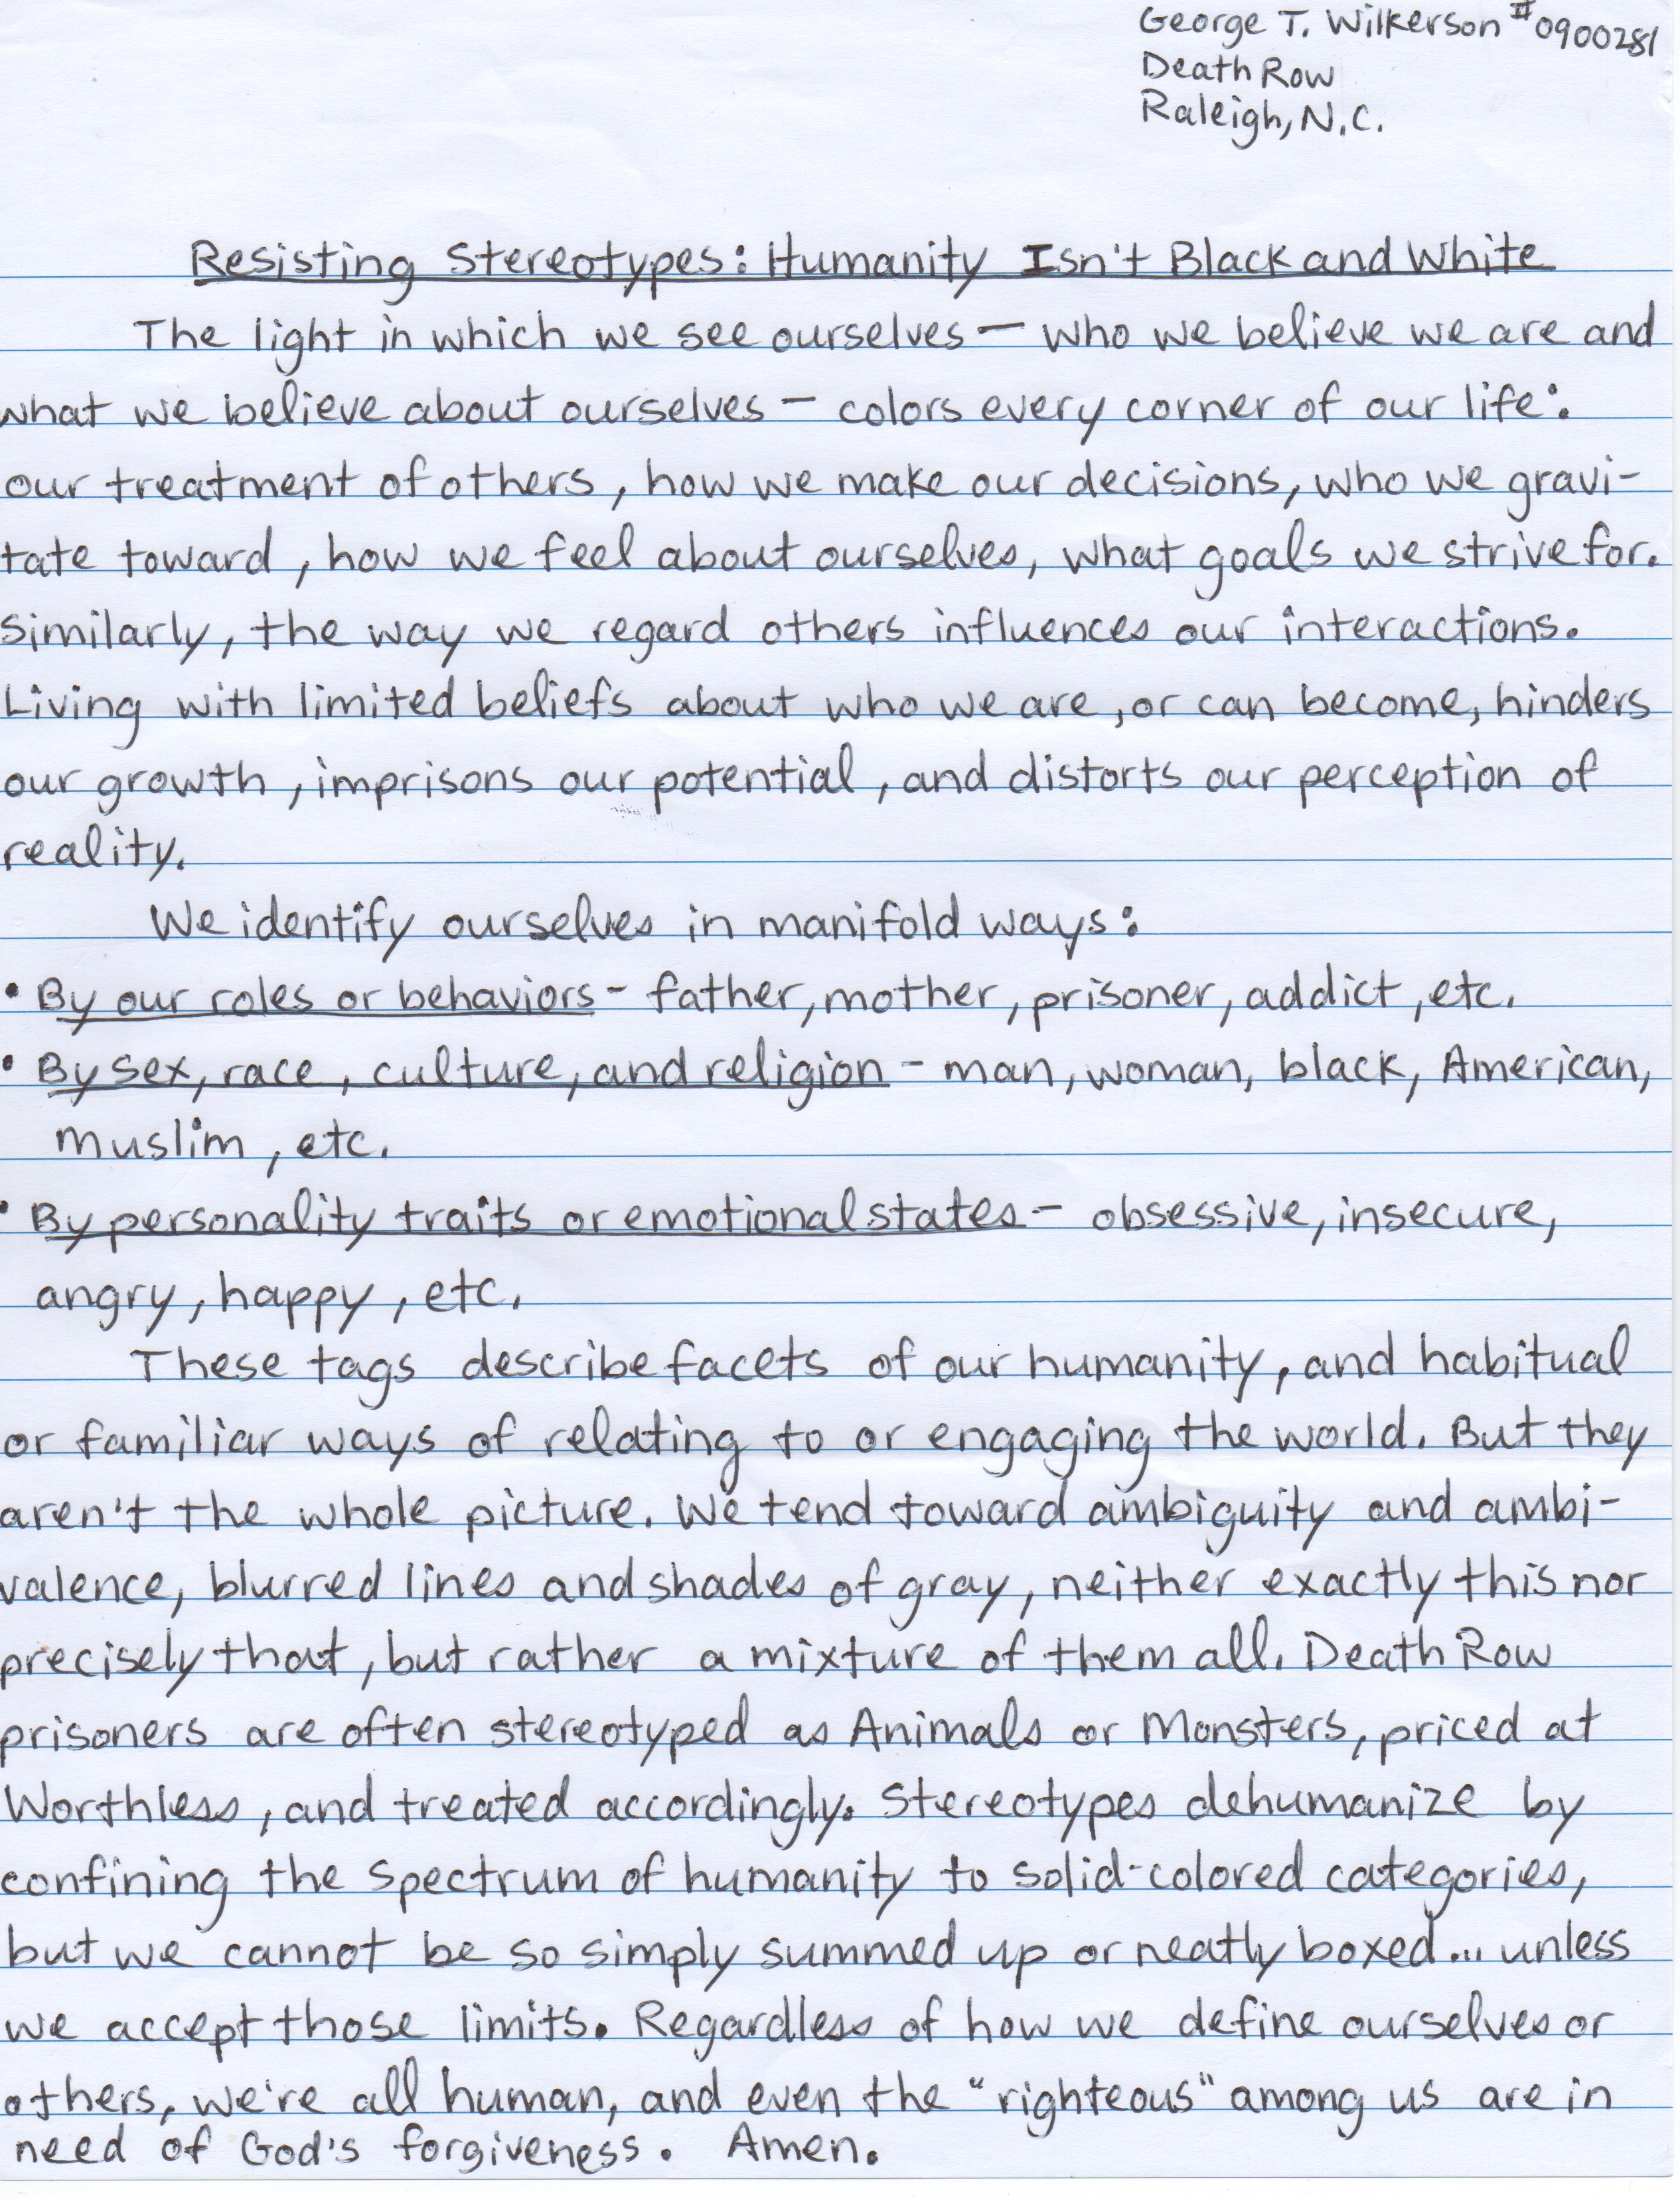 George T. Wilkerson #0900281
Death Row
Raleigh, N.C.
Resisting Stereotypes: Humanity Isn't Black and White
The light in which we see ourselves — who we believe we are and
what we believe about ourselves — colors every corner of our life:
our treatment of others, how we make our decisions, who we gravi-
tate toward, how we feel about ourselves, what goals we strive for.
Similarly, the way we regard others influences our interactions.
Living with limited beliefs about who we are, or can become, hinders
our growth, imprisons our potential, and distorts our perception of
reality.
We identify ourselves in manifold ways:
• By our roles or behaviors - father, mother, prisoner, addict, etc.
• By sex, race, culture, and religion - man, woman, black, American,
muslim, etc.
• By personality traits or emotional states - obsessive, insecure,
angry, happy, etc.
These tags describe facets of our humanity, and habitual
or familiar ways of relating to or engaging the world. But they
aren't the whole picture. We tend toward ambiguity and ambi-
valence, blurred lines and shades of gray, neither exactly this nor
precisely that, but rather a mixture of them all. Death Row
prisoners are often stereotyped as Animals or Monsters, priced at
Worthless, and treated accordingly. Stereotypes dehumanize by
confining the spectrum of humanity to solid-colored categories,
but we cannot be so simply summed up or neatly boxed... unless
we accept those limits. Regardless of how we define ourselves or
others, we're all human, and even the "righteous" among us are in
need of God's forgiveness. Amen.